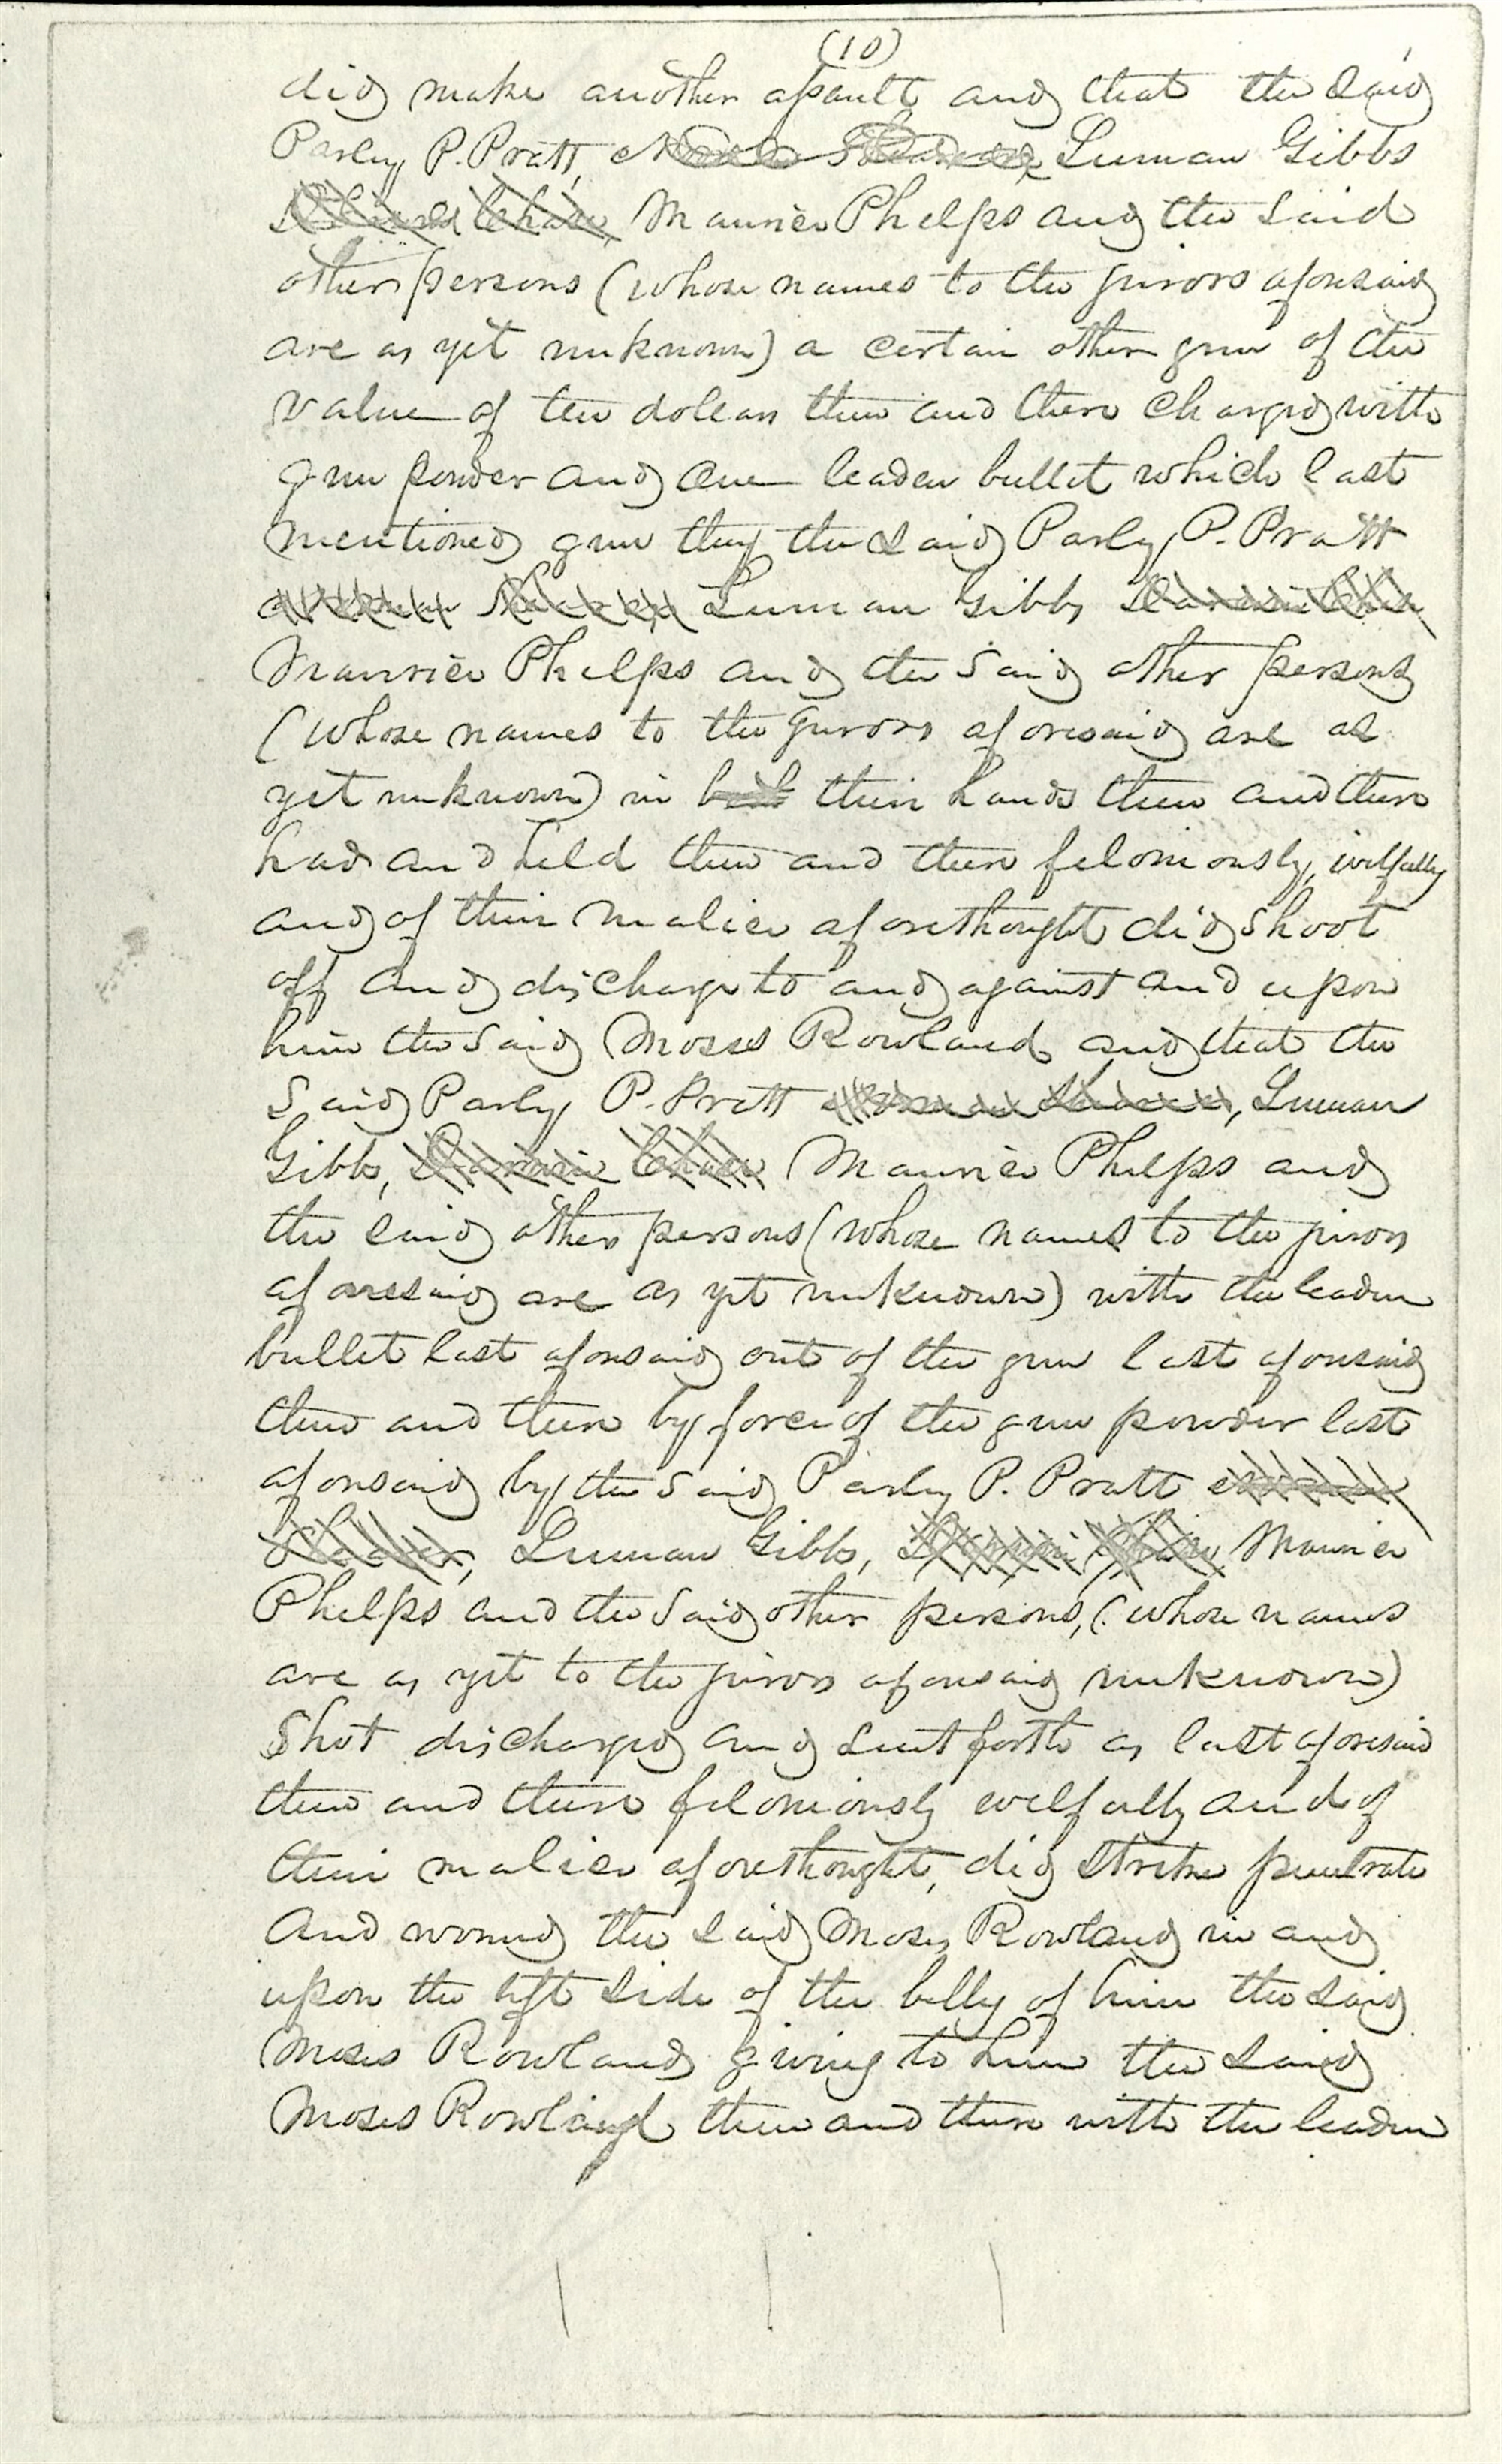 (10)
did make another assault and that the said
Parley P. Pratt, Luman Gibbs
Maurice Phelps and the said
other persons (whose names to the jurors aforesaid
are as yet unknown) a certain other gun of the
value of ten dollars then and there charged with
gun powder and one leaden bullet which last
mentioned gun they the said Parley P. Pratt
Luman Gibbs
Maurice Phelps and the said other persons
(whose names to the jurors aforesaid are as
yet unknown) in both their hands then and there
had and held then and there feloniously, wilfully
and of their malice aforethought did shoot
off and discharge to and against and upon
him the said Moses Rowland and that the
said Parley P. Pratt, Luman
Gibbs, Maurice Phelps and
the said other persons (whose names to the jurors
aforesaid are as yet unknown) with the leaden
bullet last aforesaid out of the gun last aforesaid
then and there by force of the gun powder last
aforesaid by the said Parley P. Pratt
Luman Gibbs, Maurice
Phelps and the said other persons, (whose names
are as yet to the jurors aforesaid unknown)
shot discharged and sent forth as last aforesaid
then and there feloniously wilfully and of
their malice aforethought, did strike penetrate
and wound the said Moses Rowland in and
upon the left side of the belly of him the said
Moses Rowland giving to him the said
Moses Rowland then and there with the leaden